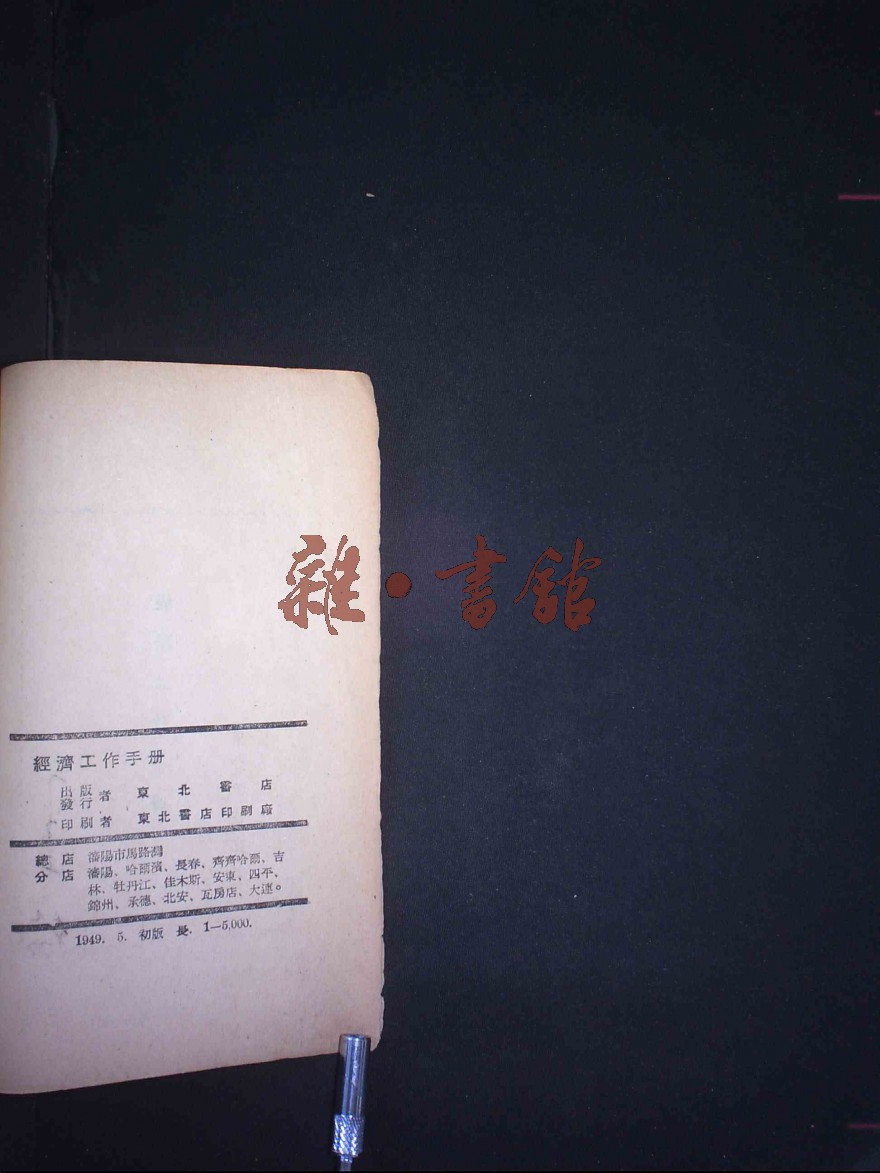 雜·書館
經濟工作手册
出版
發行者 東北書店
印刷者 東北書店印刷廠
總店 瀋陽市馬路灣
分店 瀋陽、哈爾濱、長春、齊齊哈爾、吉
林、牡丹江、佳木斯、安東、四平、
錦州、承德、北安、瓦房店、大連。
1949. 5. 初版 長. 1—5,000.